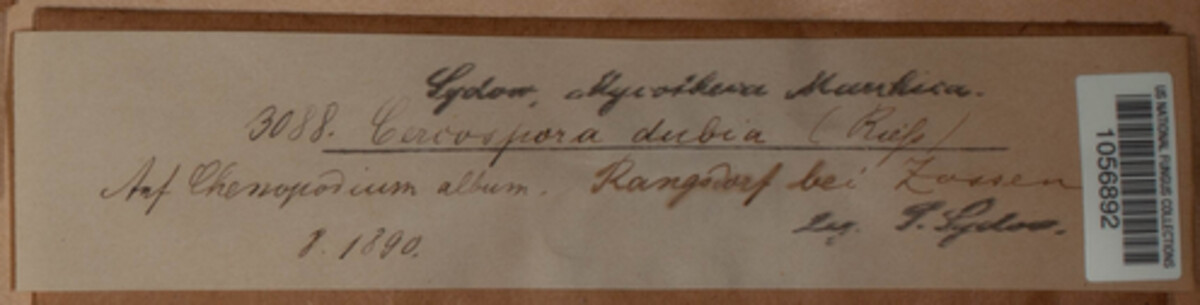 Sydow, Mycotheca Marchica.
3088. Cercospora dubia (Rieß)
Auf Chenopodium album. Rangsdorf bei Zossen
8. 1890.
leg. P. Sydow.
US NATIONAL FUNGUS COLLECTIONS
1056892